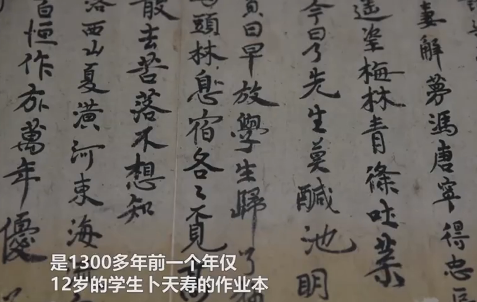 妻解夢馮唐寧得忠
遥望梅林青條吐葉
今日了先生莫鹹池明
日早放學生歸了
頭林息宿各々覓高
散去苦落不想知
洛西山夏潢河東海
百恒作方萬年優
是1300多年前一个年仅
12岁的学生卜天寿的作业本